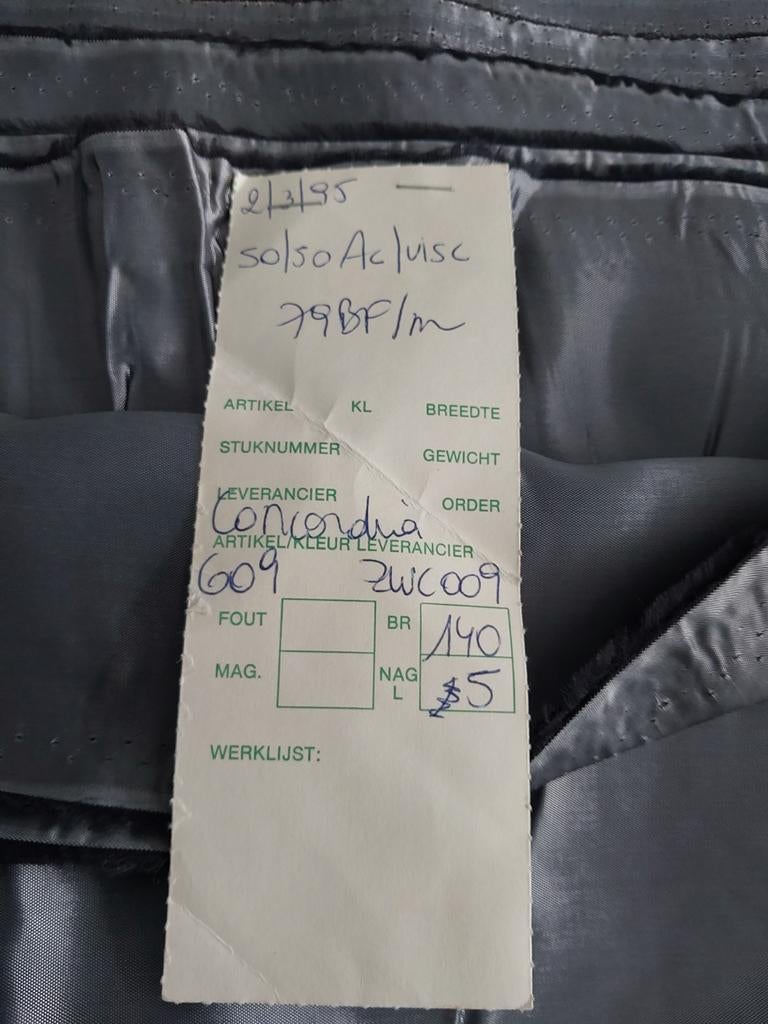 2/3/95
50/50 Ac/visc
79BF/m
ARTIKEL KL BREEDTE
STUKNUMMER GEWICHT
LEVERANCIER ORDER
Concordia
ARTIKEL/KLEUR LEVERANCIER
609 ZWC009
FOUT BR 140
MAG. NAG L 5
WERKLIJST: